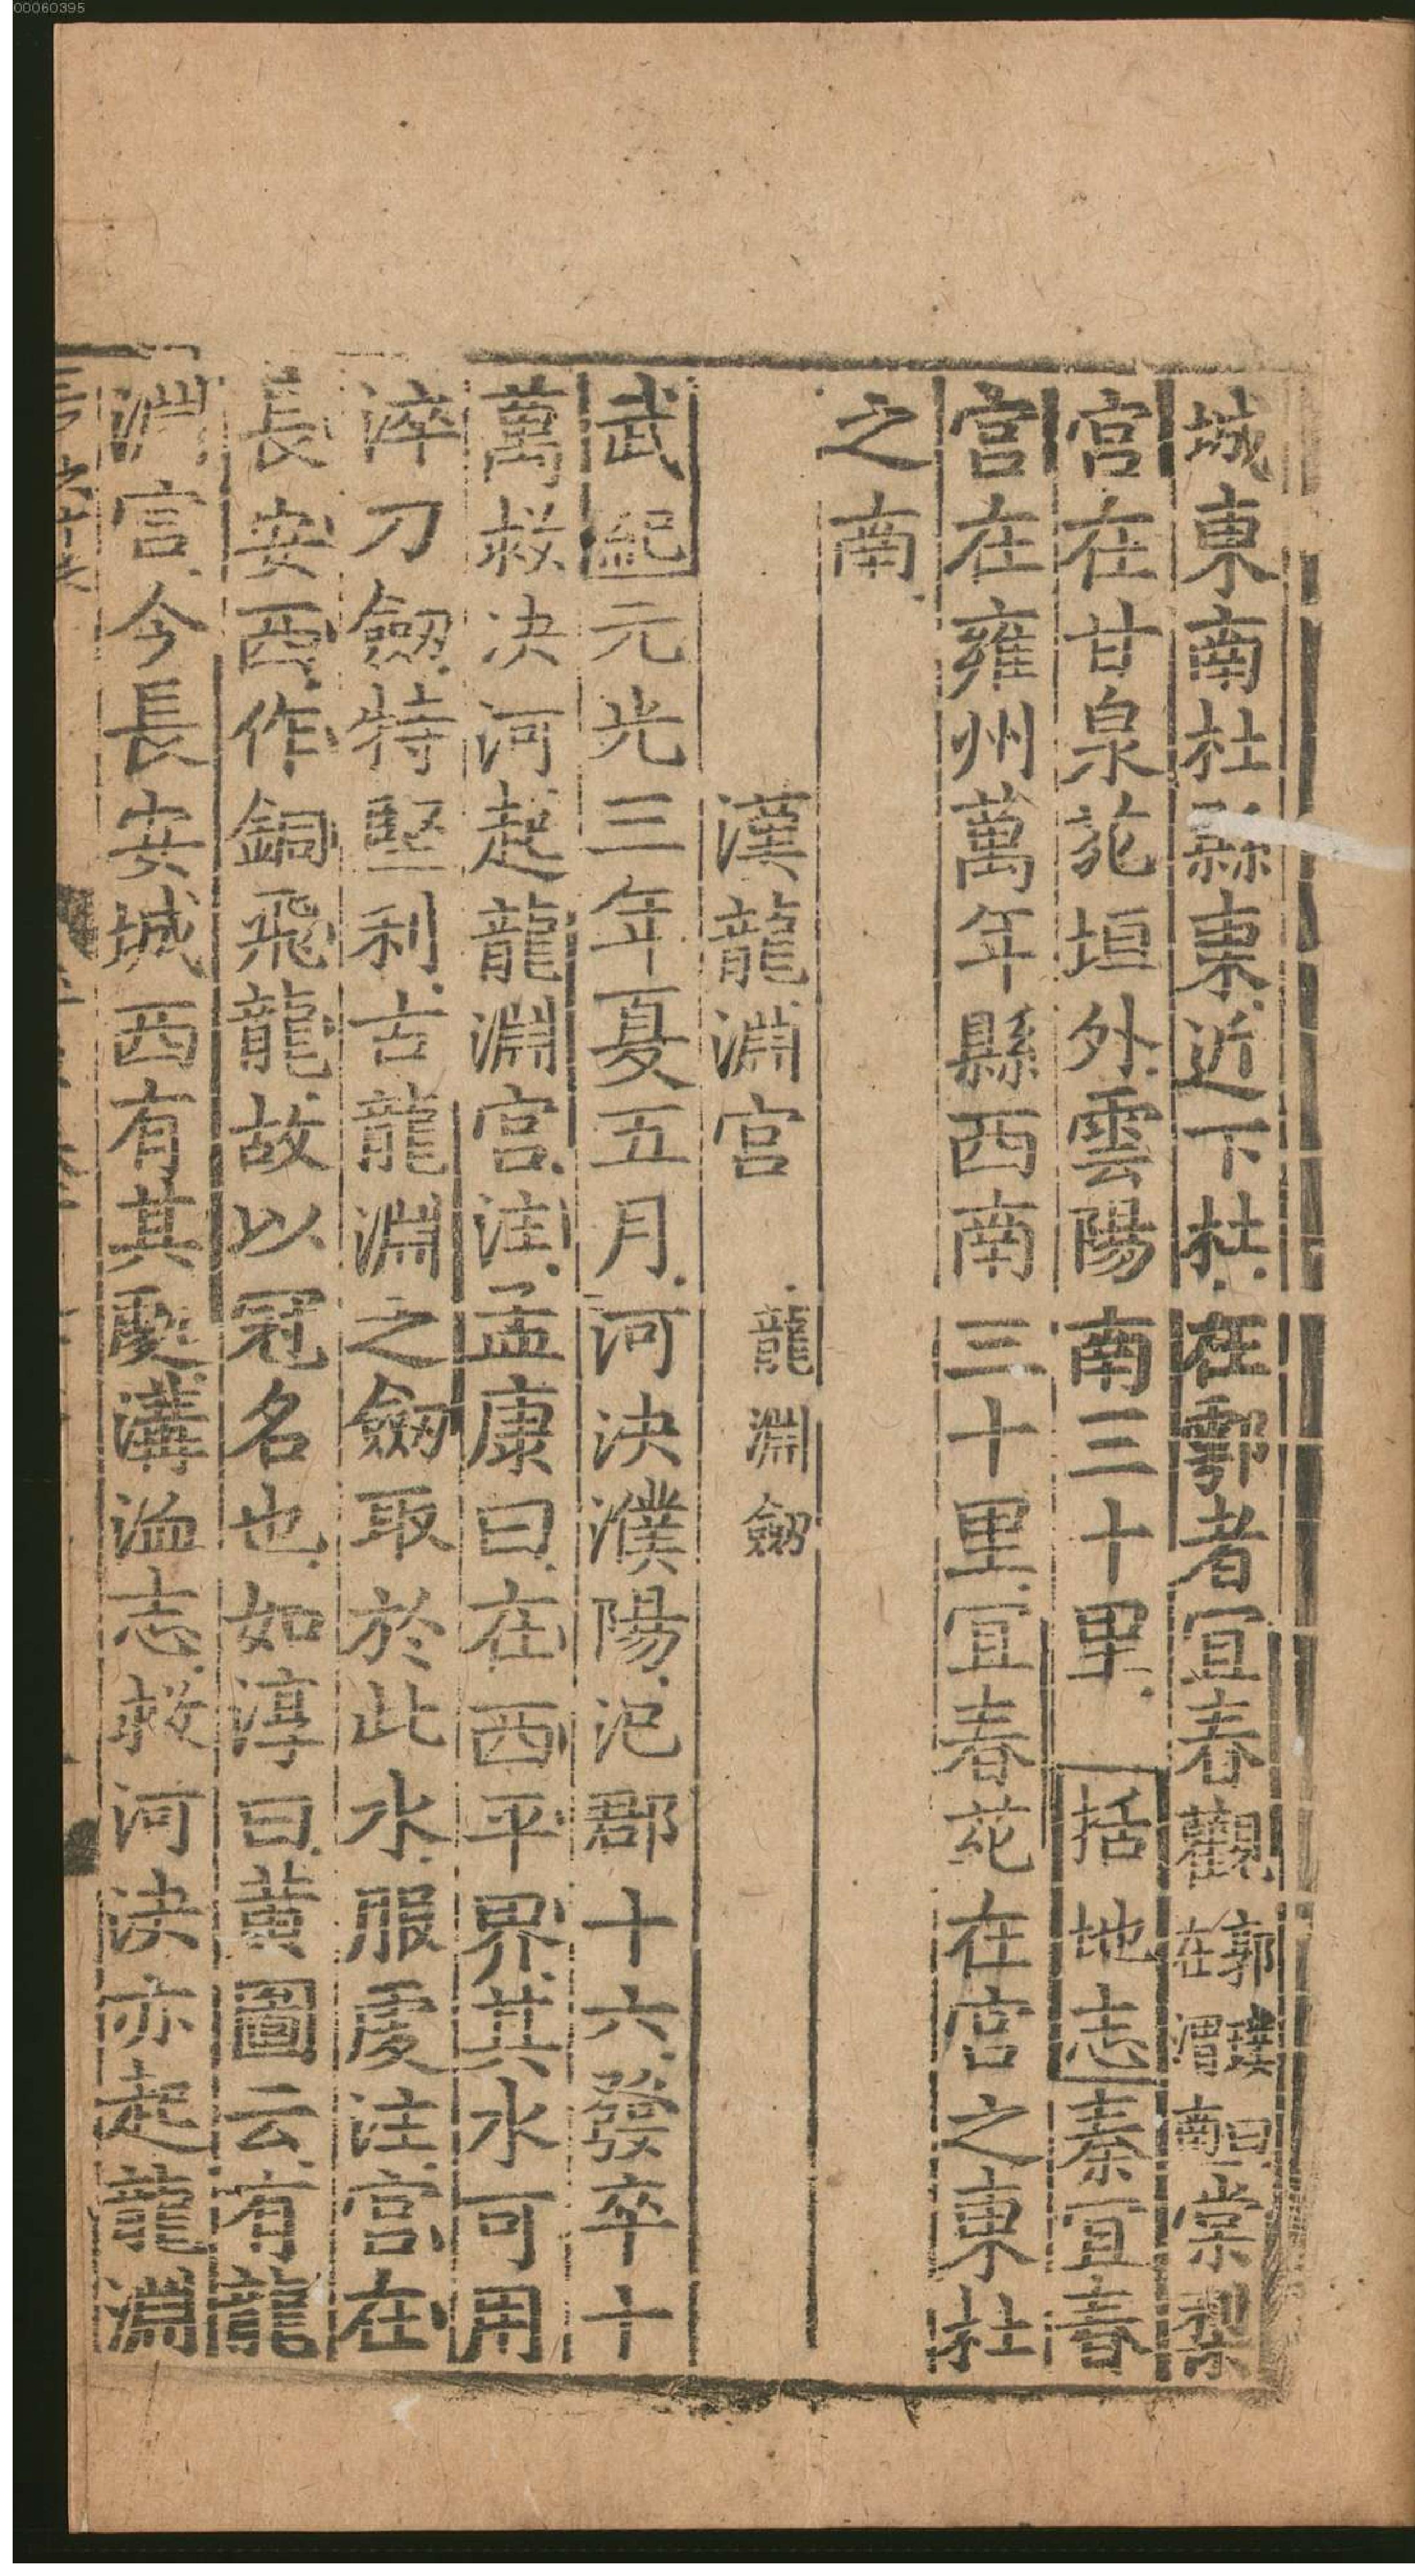 00060395
城東南杜縣東近下杜在鄠者宜春觀郭璞曰在渭南棠梨
宮在甘泉苑垣外雲陽南三十里括地志秦宜春
宮在雍州萬年縣西南三十里宜春苑在宮之東杜
之南
漢龍淵宮 龍淵劒
武紀元光三年夏五月河決濮陽氾郡十六發卒十
萬救决河起龍淵宮注孟康曰在西平界其水可用
淬刀劒特堅利古龍淵之劒取於此水服虔注宮在
長安西作銅飛龍故以冠名也如淳曰黃圖云有龍
淵宮今長安城西有其處溝洫志救河決亦起龍淵